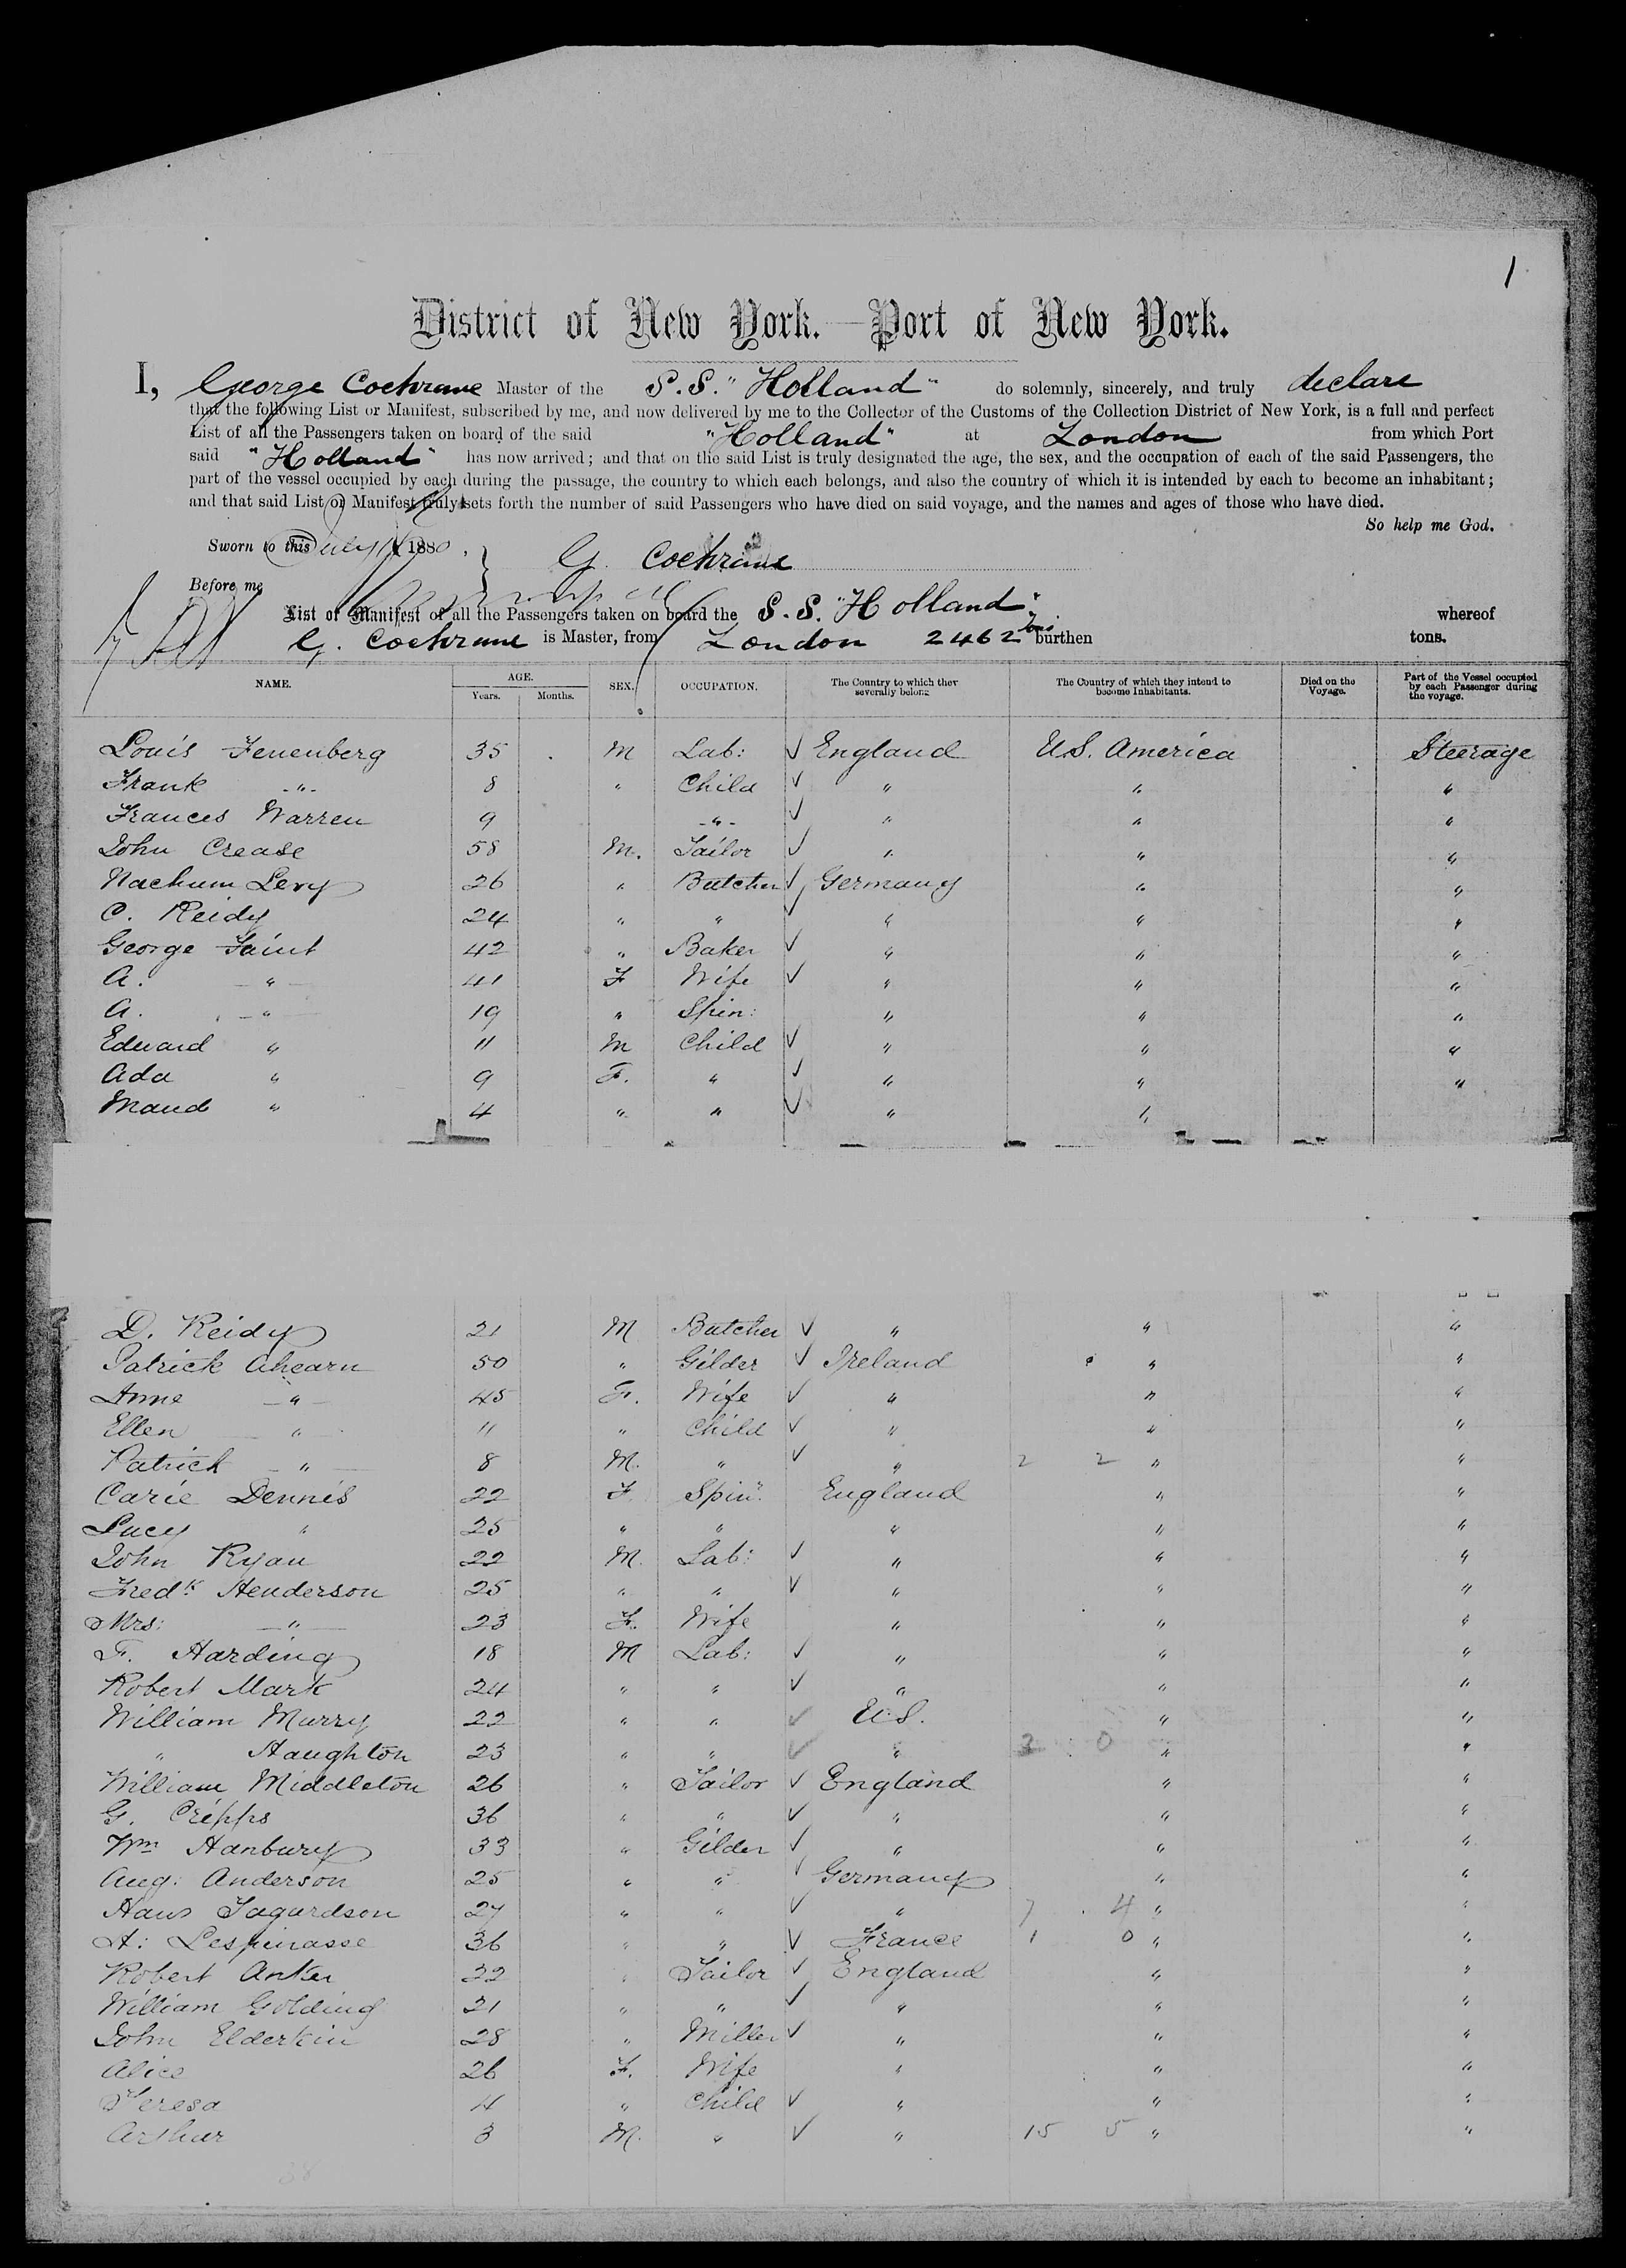 1
District of New York.—Port of New York.
I, George Cochrane Master of the S.S. "Holland" do solemnly, sincerely, and truly declare
that the following List or Manifest, subscribed by me, and now delivered by me to the Collector of the Customs of the Collection District of New York, is a full and perfect
List of all the Passengers taken on board of the said "Holland" at London from which Port
said "Holland" has now arrived; and that on the said List is truly designated the age, the sex, and the occupation of each of the said Passengers, the
part of the vessel occupied by each during the passage, the country to which each belongs, and also the country of which it is intended by each to become an inhabitant;
and that said List or Manifest truly sets forth the number of said Passengers who have died on said voyage, and the names and ages of those who have died.
So help me God.
Sworn to this July 1880.
G. Cochrane
Before me
List or Manifest of all the Passengers taken on board the S.S. "Holland" whereof
G. Cochrane is Master, from London 2462 tons burthen tons.
NAME. AGE. Years. Months. SEX. OCCUPATION. The Country to which they severally belong The Country of which they intend to become Inhabitants. Died on the Voyage. Part of the Vessel occupied by each Passenger during the voyage.
Louis Fenenberg 35 M Lab: ✓ England U.S. America Steerage
Frank -"- 8 " Child ✓ " " "
Frances Warren 9 -"- ✓ " " "
John Crease 58 M. Tailor ✓ " " "
Nachum Levy 26 " Butcher ✓ Germany " "
C. Reidy 24 " " ✓ " " "
George Faint 42 " Baker ✓ " " "
A. " 41 F Wife ✓ " " "
A. " 19 " Spin: " " "
Edward " 11 M Child ✓ " " "
Ada " 9 F. " ✓ " " "
Maud " 4 " " ✓ " "
D. Reidy 21 M Butcher ✓ " " "
Patrick Ahearn 50 " Gilder ✓ Ireland " "
Anne " 45 F. Wife ✓ " " "
Ellen " 11 " Child ✓ " " "
Patrick " 8 M. " ✓ " 2 2 " "
Carie Dennis 22 F Spin: England " "
Lucy " 25 " " " " "
John Ryan 22 M. Lab: ✓ " " "
Fredk Henderson 25 " " ✓ " " "
Mrs: " 23 F. Wife " " "
F. Harding 18 M Lab: ✓ " " "
Robert Mark 24 " " ✓ " " "
William Murry 22 " " ✓ U.S. " "
" Haughton 23 " " ✓ " 2 0 " "
William Middleton 26 " Tailor ✓ England " "
G. Cripps 36 " " ✓ " " "
Wm Hanbury 33 " Gilder ✓ " " "
Aug: Anderson 25 " " ✓ Germany " "
Hans Jagardson 27 " " ✓ " 7 4 " "
A: Lespinasse 36 " " ✓ France 1 0 " "
Robert Anker 22 " Tailor ✓ England " "
William Golding 21 " " ✓ " " "
John Elderkin 28 " Miller ✓ " " "
Alice 26 F. Wife " " "
Teresa 4 " Child ✓ " " "
Arthur 3 M. " ✓ " 15 5 " "
38